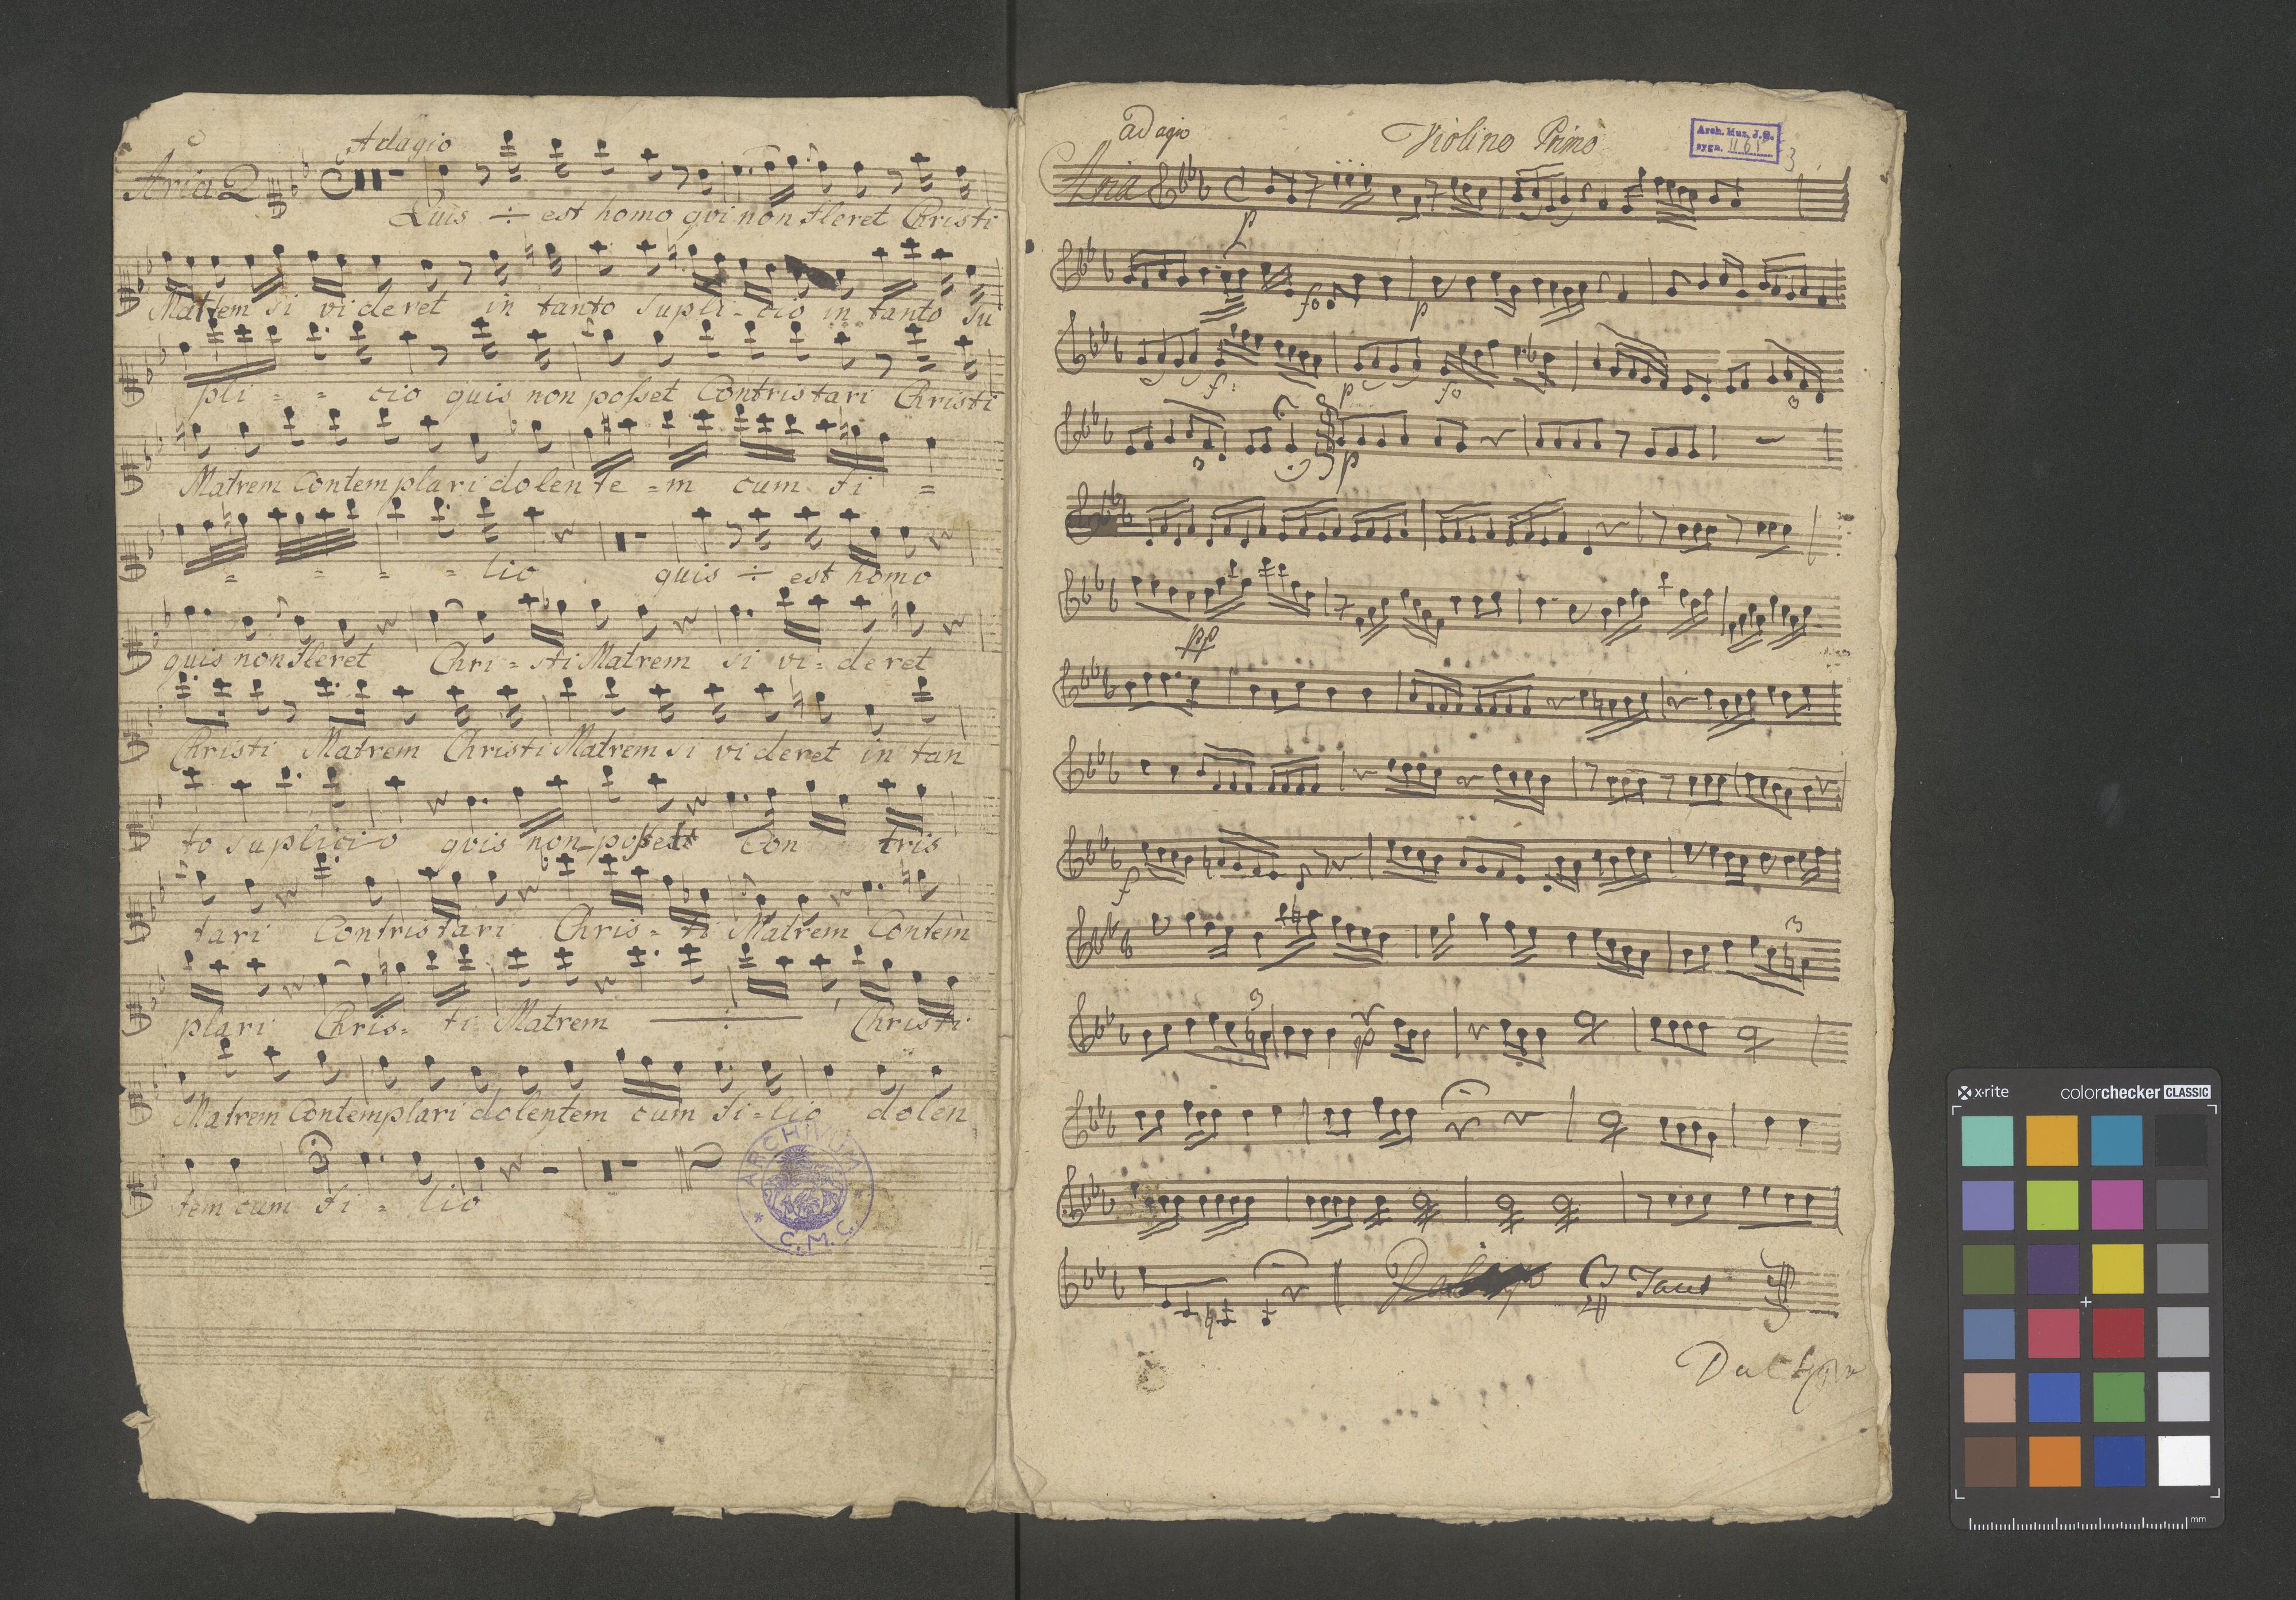 Adagio
Aria 2
Quis ÷ est homo qui non fleret Christi
Matrem si videret in tanto supli - cio in tanto su
pli = = cio quis non posset Contristari Christi
Matrem Contemplari dolen te = m cum fi =
= = = = lio quis ÷ est homo
quis non fleret Chri = sti Matrem si vi = deret
Christi Matrem Christi Matrem si videret in tan
to suplicio quis non posset Con tris
tari Contristari Chris = ti Matrem Contem
plari Chris = ti Matrem Christi
Matrem Contemplari dolentem cum fi = lio dolen
tem cum fi = lio
ARCHIVUM
C. M. C.
adagio
Violino Primo
Arch. Muz. J. G.
sygn.
3
Aria
p
fo p
f: p fo
3
3 p
pp
f
3
3
p